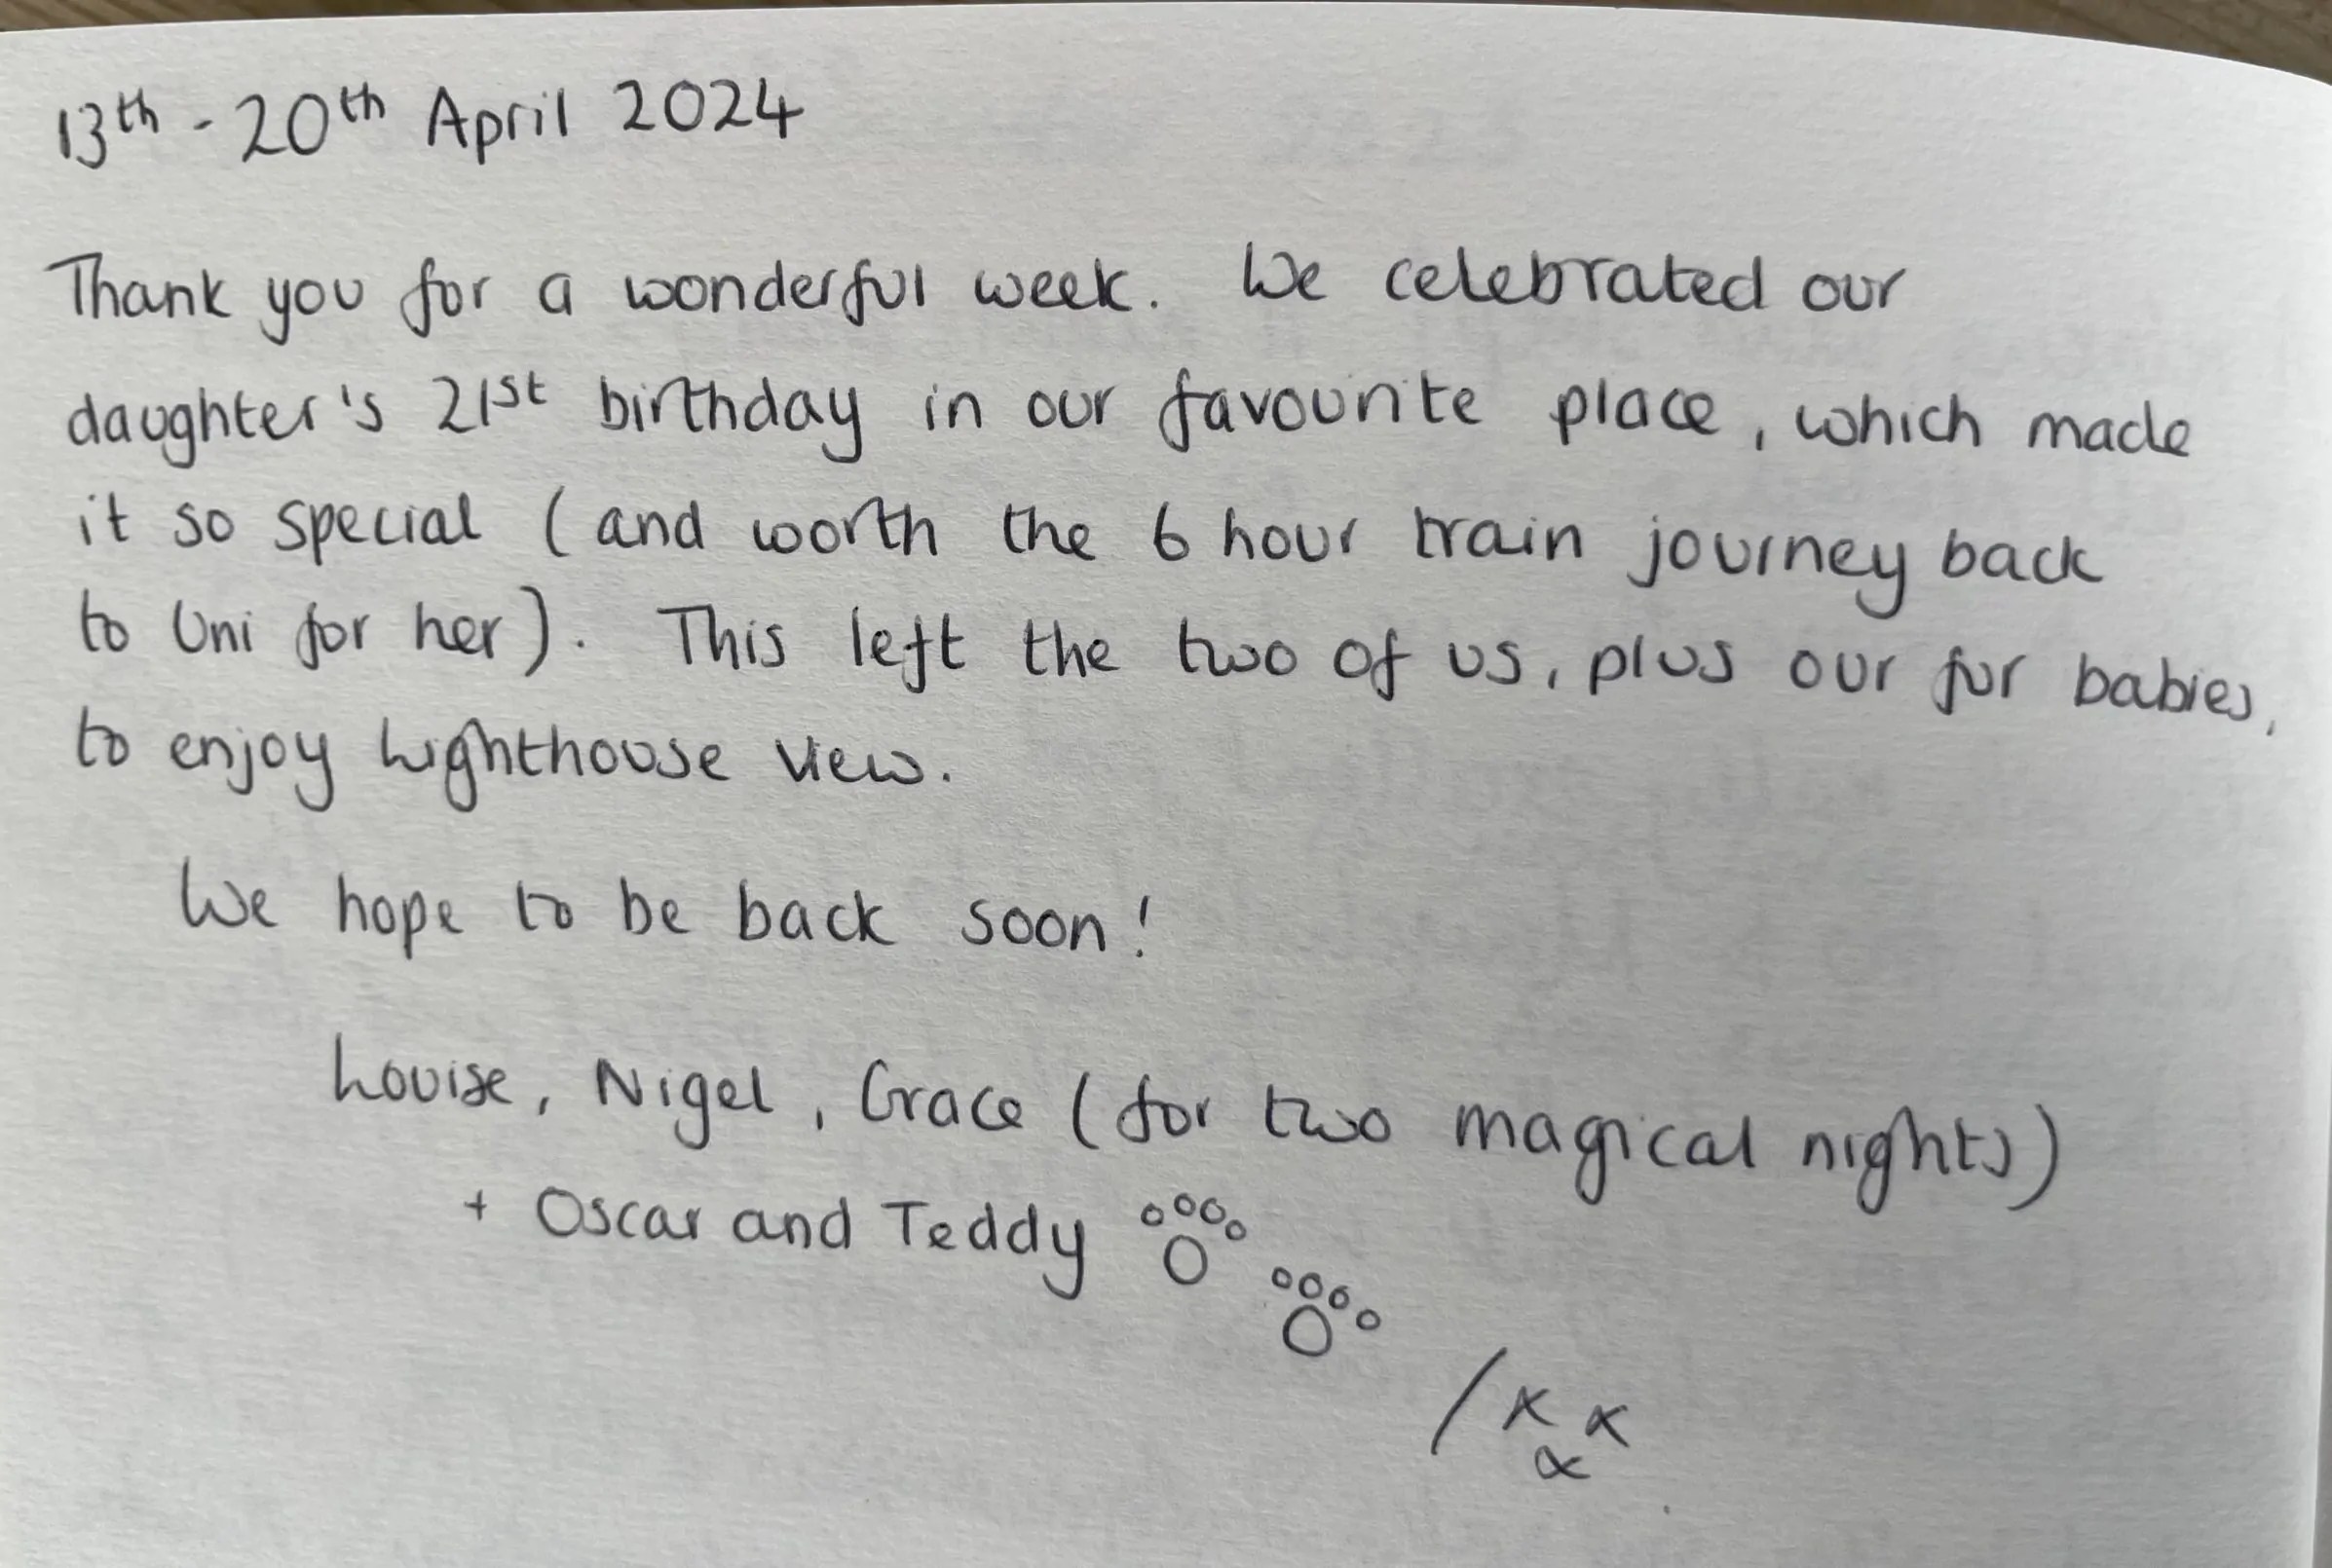 13th - 20th April 2024
Thank you for a wonderful week. We celebrated our
daughter's 21st birthday in our favourite place, which made
it so special (and worth the 6 hour train journey back
to Uni for her). This left the two of us, plus our fur babies,
to enjoy Lighthouse View.
We hope to be back soon!
Louise, Nigel, Grace (for two magical nights)
+ Oscar and Teddy
/ x x
x